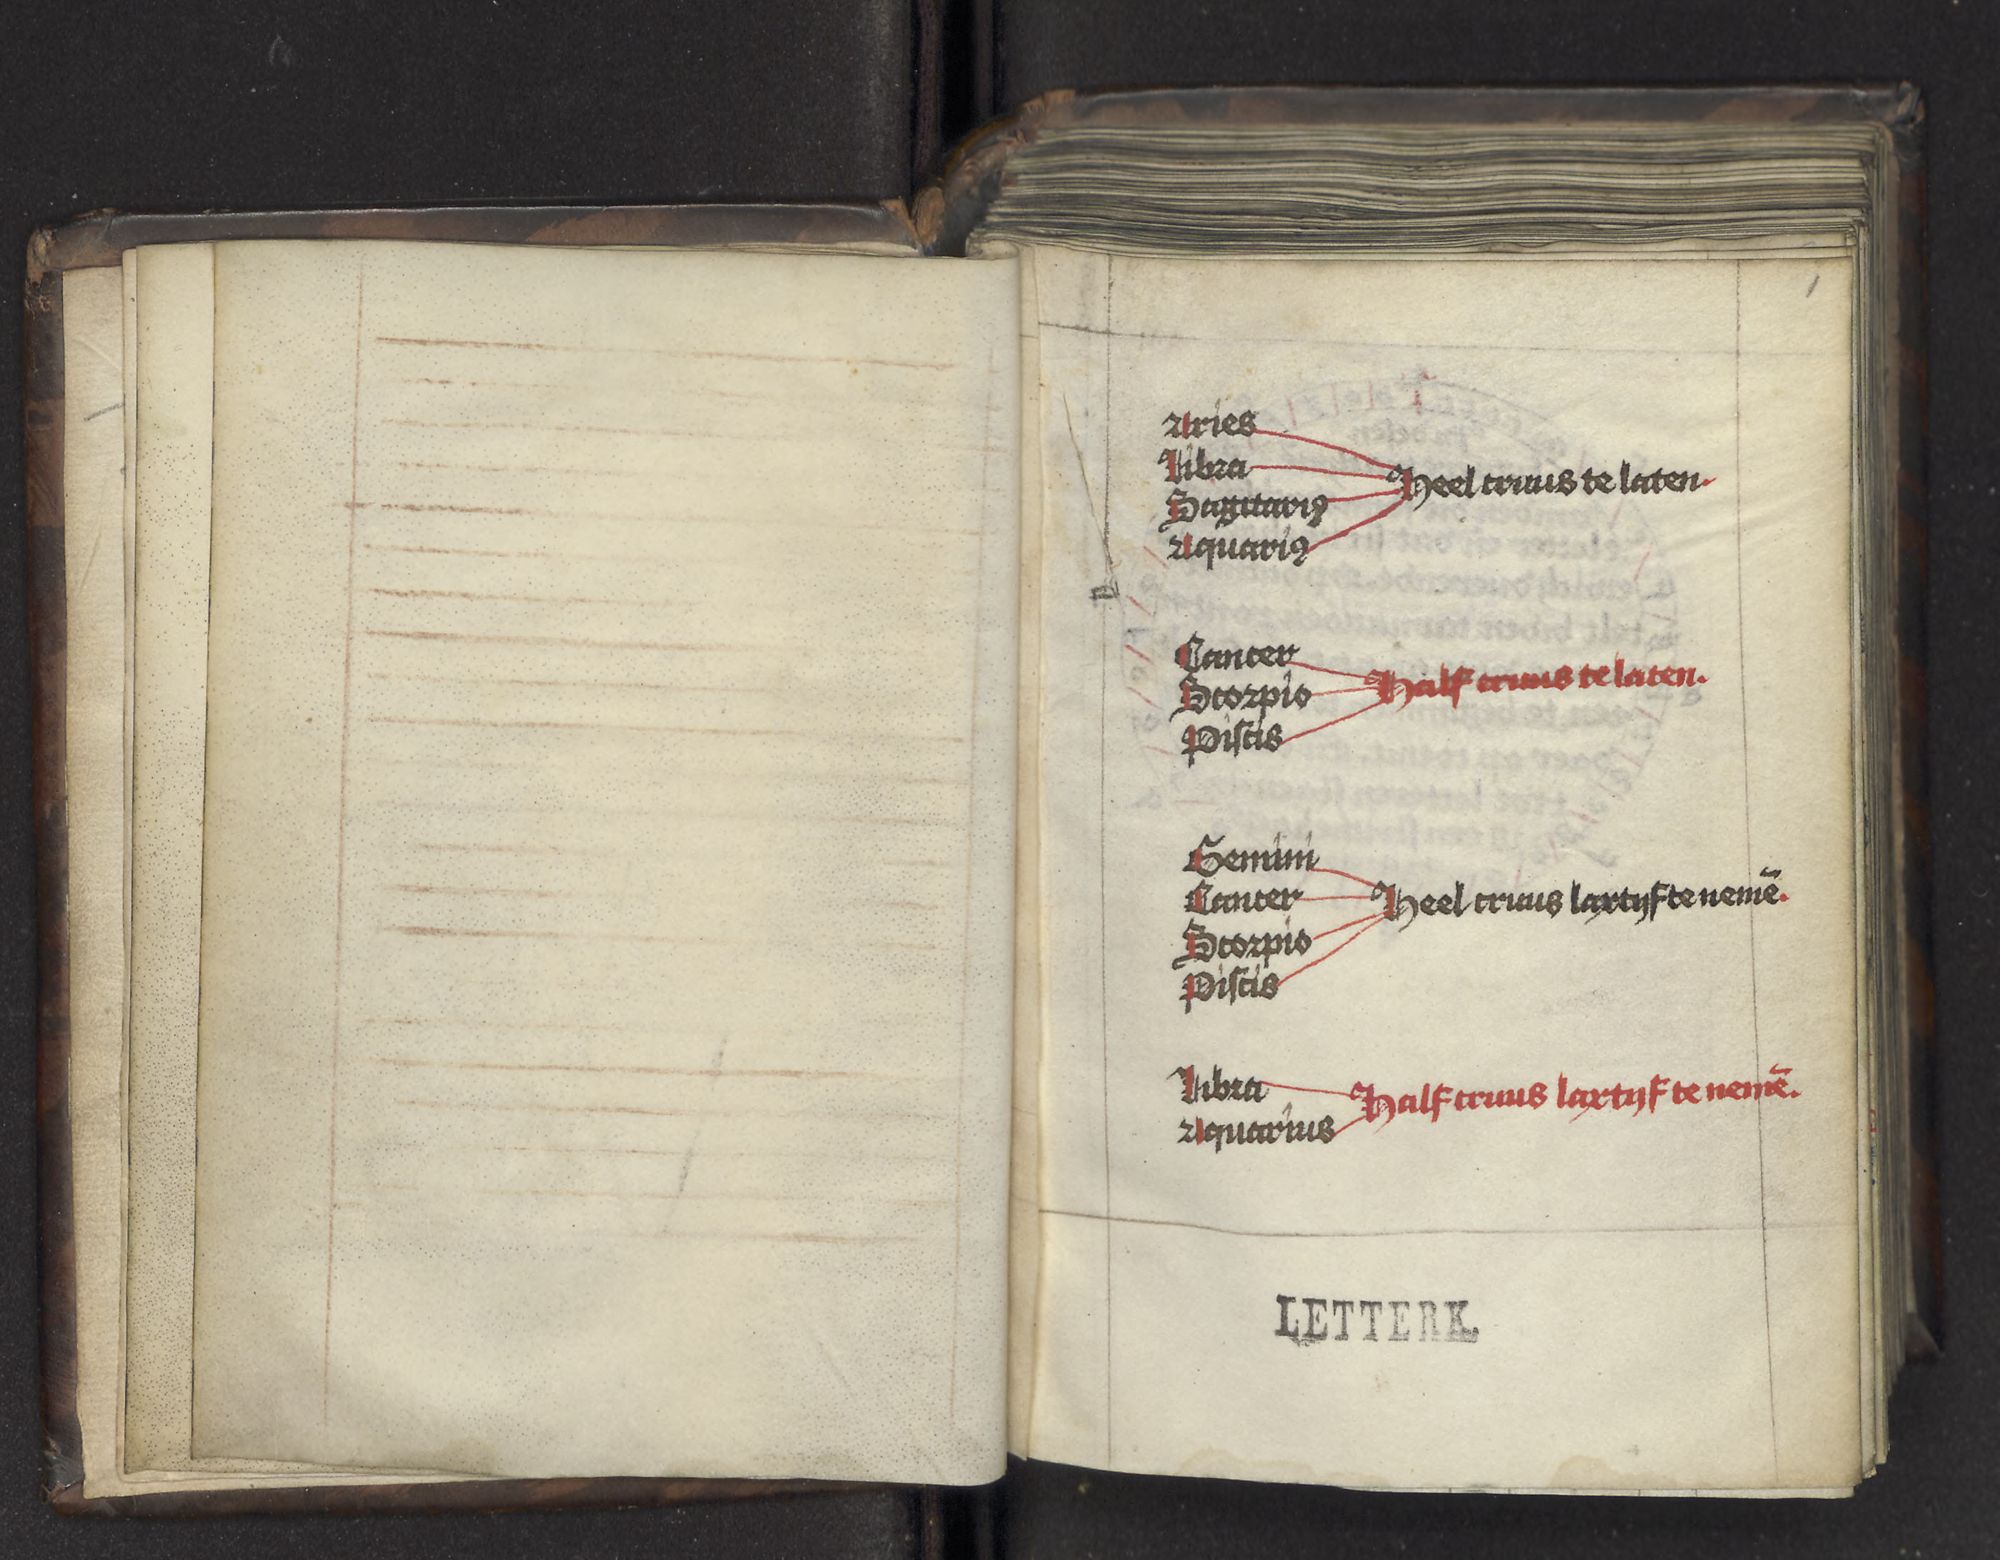 1
Aries
Libra
Sagitariꝰ
Aquariꝰ
Heel cruus te laten.
Cancer
Scorpio
Piscis
Half cruus te laten.
Gemini
Cancer
Scorpio
Piscis
Heel cruus laxtijf te nemē.
Libra
Aquarius
Half cruus laxtijf te nemē.
LETTERK.